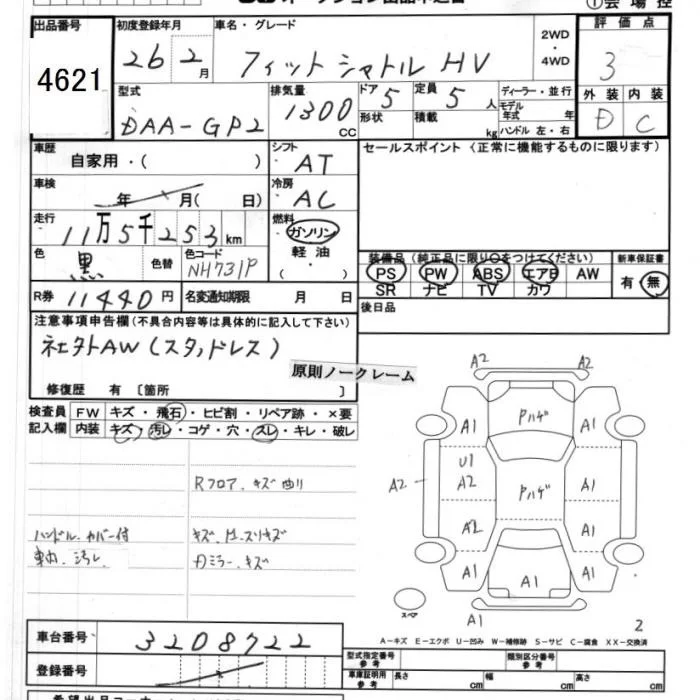 ①会場控
出品番号
4621
初度登録年月
26 2月
車名・グレード
フィットシャトル HV
2WD
・
4WD
評価点
3
外装 内装
D C
型式
DAA-GP2
排気量
1300
CC
ドア 5 定員 5 人
形状 積載 kg
ディーラー・並行
モデル
年式 年
ハンドル 左・右
車歴
自家用・( )
シフト
AT
セールスポイント (正常に機能するものに限ります)
車検
年 月( 日)
冷房
AC
走行
11万5千253km
燃料
ガソリン
軽油
・( )
色 黒 色替
色コード
NH731P
装備品 (純正品に限り○をつけてください)
PS PW ABS エアB AW
SR ナビ TV カワ
新車保証書
有・無
R券 11440円
名変通知期限 月 日
後日品
注意事項申告欄(不具合内容等は具体的に記入して下さい)
社外AW(スタッドレス)
原則ノークレーム
修復歴 有 〔箇所 〕
検査員
記入欄
FW キズ・飛石・ヒビ割・リペア跡・×要
内装 キズ・汚レ・コゲ・穴・スレ・キレ・破レ
Rフロア.キズ曲り
ハンドル.カバー付
車内.汚レ
キズ.
ミラー.キズ
A2 A2
A1 Pハゲ A1
U1
A2 A2 Pハゲ A1
A2 A1
A1 A1 A1
スペア
A1
2
A-キズ E-エクボ U-凹み W-補修跡 S-サビ C-腐食 XX-交換済
車台番号 3208722
登録番号
型式指定番号
参考
類別区分番号
参考
車庫証明用
参考
長さ cm 幅 cm 高さ cm